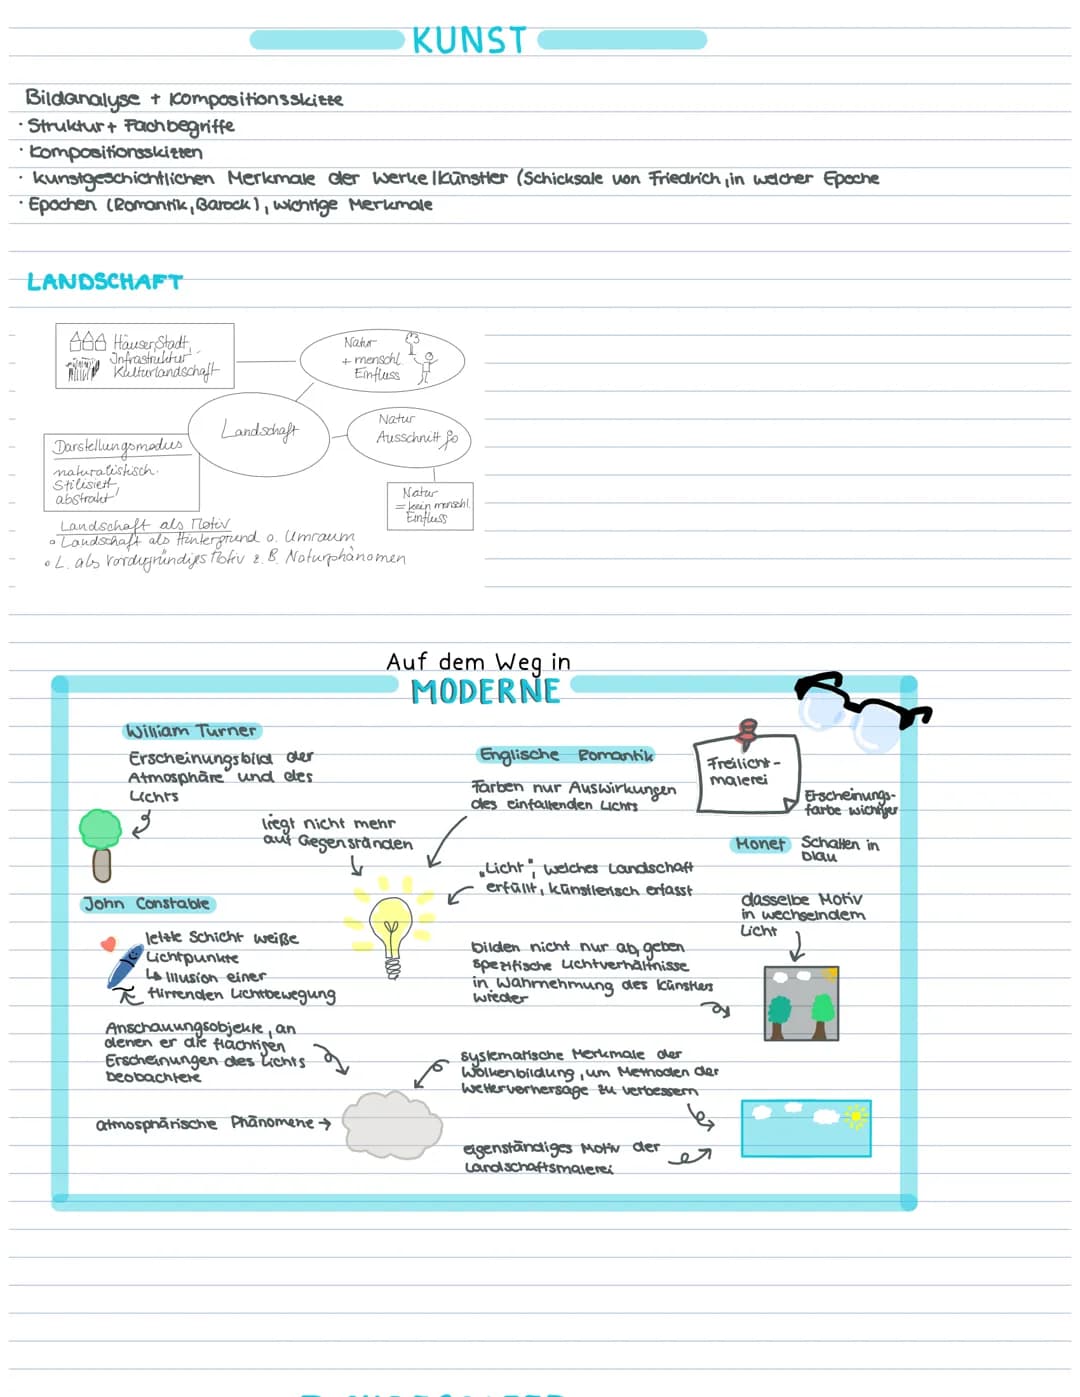 KUNST
Bildanalyse + Kompositionsskizze
· Struktur + Fachbegriffe
· Kompositionsskizzen
· Kunstgeschichtlichen Merkmale der Werke/Künstler (Schicksale von Friedrich, in welcher Epoche
· Epochen (Romantik, Barock), wichtige Merkmale
LANDSCHAFT
Häuser, Stadt,
Infrastruktur
Kulturlandschaft
Natur
+ menschl.
Einfluss
Landschaft
Natur
Ausschnitt
Darstellungsmodus
naturalistisch
stilisiert
abstrakt
Natur
= kein menschl.
Einfluss
Landschaft als Motiv
• Landschaft als Hintergrund o. Umraum
• L. als vordergründiges Motiv z.B. Naturphänomen
Auf dem Weg in
MODERNE
William Turner
Erscheinungsbild der
Atmosphäre und des
Lichts
liegt nicht mehr
auf Gegenständen
Englische Romantik
Farben nur Auswirkungen
des einfallenden Lichts
Freilicht-
malerei
Erscheinungs-
farbe wichtiger
Monet Schatten in
blau
„Licht", welches Landschaft
erfüllt, künstlerisch erfasst
dasselbe Motiv
in wechselndem
Licht
John Constable
letzte Schicht weiße
Lichtpunkte
↳ Illusion einer
flirrenden Lichtbewegung
bilden nicht nur ab, geben
spezifische Lichtverhältnisse
in Wahrnehmung des Künstlers
wieder
Anschauungsobjekte, an
denen er die flüchtigen
Erscheinungen des Lichts
beobachtete
systematische Merkmale der
Wolkenbildung, um Methoden der
Wettervorhersage zu verbessern
atmosphärische Phänomene →
eigenständiges Motiv der
Landschaftsmalerei